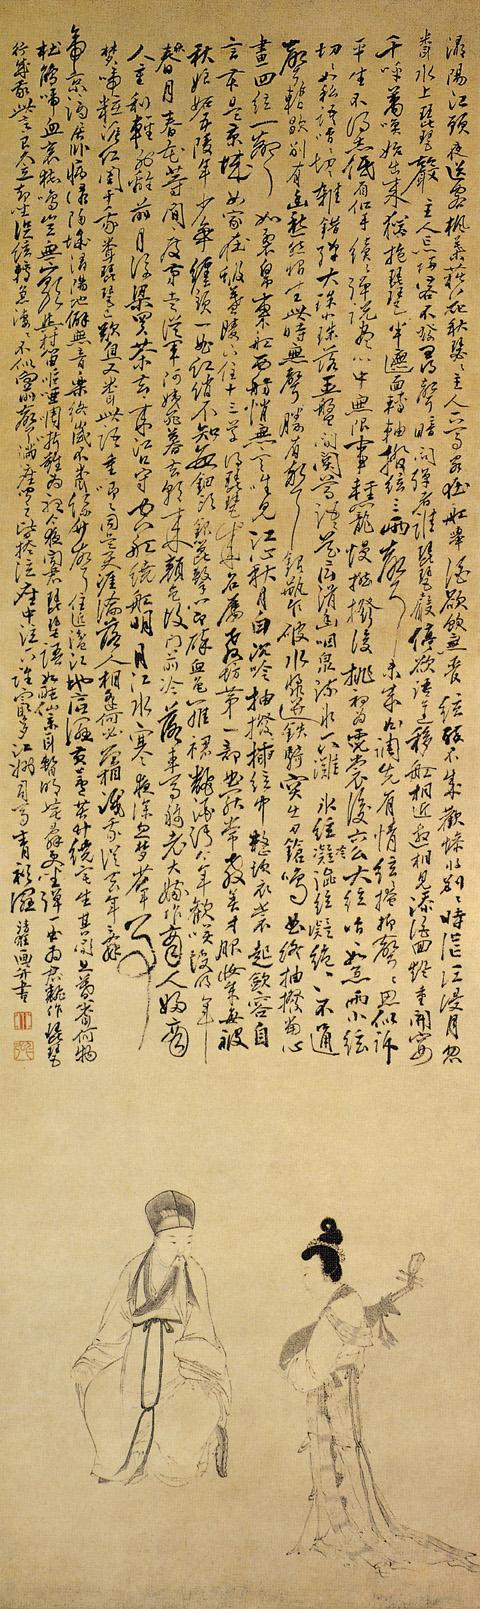 潯陽江頭夜送客楓葉荻花秋瑟瑟主人下馬客在舡舉酒欲飲無管絃醉不成歡慘將別別時茫茫江浸月忽
聞水上琵琶聲主人忘歸客不發尋聲暗問彈者誰琵琶聲停欲語遲移舡相近邀相見添酒回燈重開宴
千呼萬喚始出來猶抱琵琶半遮面轉軸撥絃三兩聲未成曲調先有情絃絃掩抑聲聲思似訴
平生不得志低眉信手續續彈說盡心中無限事輕攏慢撚撥復挑初為霓裳後六么大絃嘈嘈如急雨小絃
切切如私語嘈嘈切切雜錯彈大珠小珠落玉盤間關鶯語花底滑幽咽泉流氷下灘氷絃冷澀絃凝絕凝絕不通
聲暫歇別有幽愁暗恨生此時無聲勝有聲銀瓶乍破水漿迸鐵騎突出刀鎗鳴曲終抽撥當心
畫四絃一聲如裂帛東舡西舫悄無言唯見江心秋月白沉吟抽撥插絃中整頓衣裳起斂容自
言本是京城女家在蝦蟇陵下住十三學得琵琶成名屬教坊第一部曲罷常教善才服妝成每被
秋娘妬五陵年少爭纏頭一曲紅綃不知數鈿頭銀篦擊節碎血色羅裙翻酒汙今年歡笑復明年
春月春花等閒度弟走從軍阿姨死暮去朝來顏色故門前冷落車馬稀老大嫁作商人婦商
人重利輕別離前月浮梁買茶去去來江口守空舡繞舡明月江水寒夜深忽夢少年事
夢啼粧淚紅闌干我聞琵琶已歎息又聞此語重唧唧同是天涯淪落人相逢何必曾相識我從去年辭
帝京謫居臥病潯陽城潯陽地僻無音樂終歲不聞絲竹聲住近湓江地低濕黃蘆苦竹繞宅生其間旦暮聞何物
杜鵑啼血哀猿鳴豈無山歌與村笛嘔啞嘲哳難為聽今夜聞君琵琶語如聽仙樂耳暫明莫辭更坐彈一曲為君翻作琵琶
行感我此言良久立却坐促絃絃轉急淒淒不似向前聲滿座聞之皆掩泣座中泣下誰最多江州司馬青衫濕 清狂畫并書